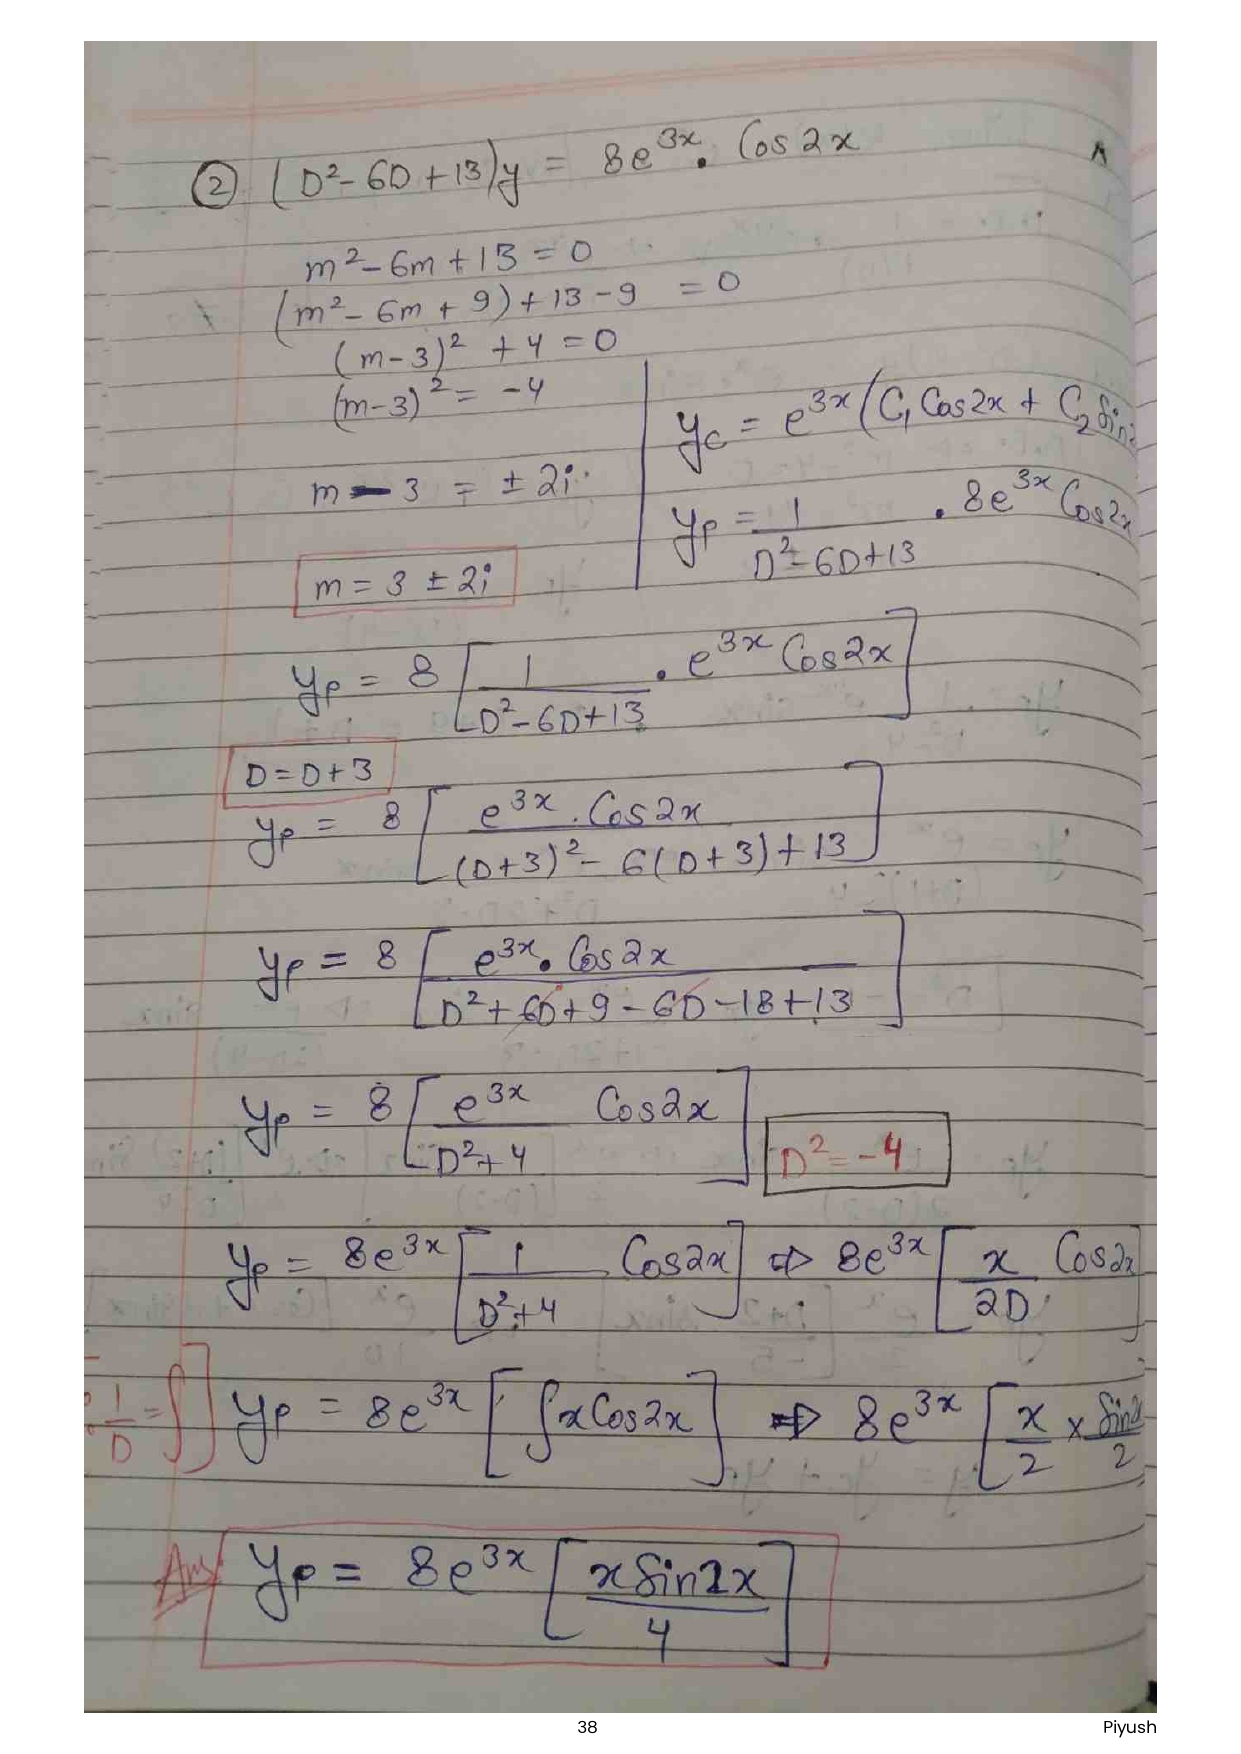 ② (D²-6D+13)y = 8e^3x . Cos2x
m²-6m+13=0
(m²-6m+9)+13-9 = 0
(m-3)² +4=0
(m-3)² = -4
m-3 = ±2i
m = 3 ± 2i
yc = e^3x (C₁ Cos2x + C₂ Sin2
yp = 1/(D²-6D+13) . 8e^3x Cos2x
yp = 8 [1/(D²-6D+13) . e^3x Cos2x]
D=D+3
yp = 8 [e^3x . Cos2x/((D+3)²-6(D+3)+13)]
yp = 8 [e^3x . Cos2x/(D²+6D+9-6D-18+13)]
yp = 8 [e^3x Cos2x/(D²+4)]
D²=-4
yp = 8e^3x [1/(D²+4) Cos2x] ⇒ 8e^3x [x/2D Cos2x]
1/D = ∫]
yp = 8e^3x [∫xCos2x] ⇒ 8e^3x [x/2 × Sin2/2
Ans
yp = 8e^3x [xSin2x/4]
38
Piyush